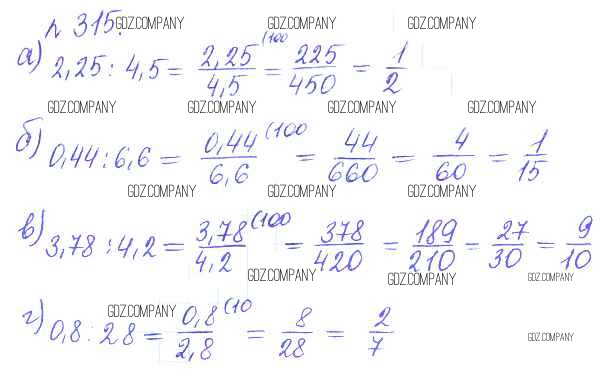 № 315. GDZ.COMPANY GDZ.COMPANY GDZ.COMPANY
а) 2,25 : 4,5 = 2,25/4,5 (100 = 225/450 = 1/2
GDZ.COMPANY GDZ.COMPANY GDZ.COMPANY GDZ.COMPANY
б) 0,44 : 6,6 = 0,44/6,6 (100 = 44/660 = 4/60 = 1/15
GDZ.COMPANY GDZ.COMPANY GDZ.COMPANY
в) 3,78 : 4,2 = 3,78/4,2 (100 = 378/420 = 189/210 = 27/30 = 9/10
GDZ.COMPANY GDZ.COMPANY GDZ.COMPANY
GDZ.COMPANY
г) 0,8 : 2 8 = 0,8/2,8 (10 = 8/28 = 2/7
GDZ.COMPANY